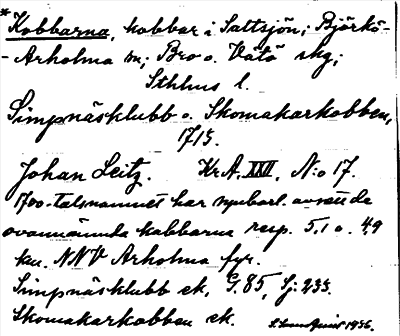 * Kobbarna, kobbar i Saltsjön; Björkö-
-Arholma sn; Bro o. Vätö skg;
Sthlms l.
Simpnäsklubb o. Skomakarkobben,
1715.
Johan Leitz. Kr.A. XXII, N:o 17.
1700-talsnamnet har uppenbarl. avsett de
ovannämnda kobbarna resp. 5,1 o. 4,9
km. NNV Arholma fyr.
Simpnäsklubb ek, G. 85, Sj: 233.
Skomakarkobben ek.
1956.